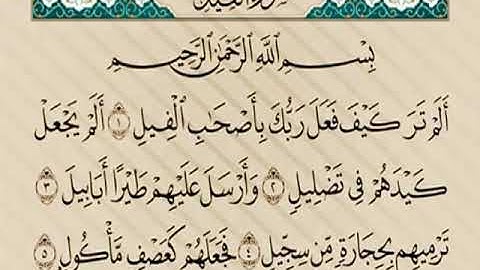 سورة الفيل
بِسْمِ اللَّهِ الرَّحْمَٰنِ الرَّحِيمِ
أَلَمْ تَرَ كَيْفَ فَعَلَ رَبُّكَ بِأَصْحَابِ الْفِيلِ ١ أَلَمْ يَجْعَلْ
كَيْدَهُمْ فِي تَضْلِيلٍ ٢ وَأَرْسَلَ عَلَيْهِمْ طَيْرًا أَبَابِيلَ ٣
تَرْمِيهِم بِحِجَارَةٍ مِّن سِجِّيلٍ ٤ فَجَعَلَهُمْ كَعَصْفٍ مَّأْكُولٍ ٥